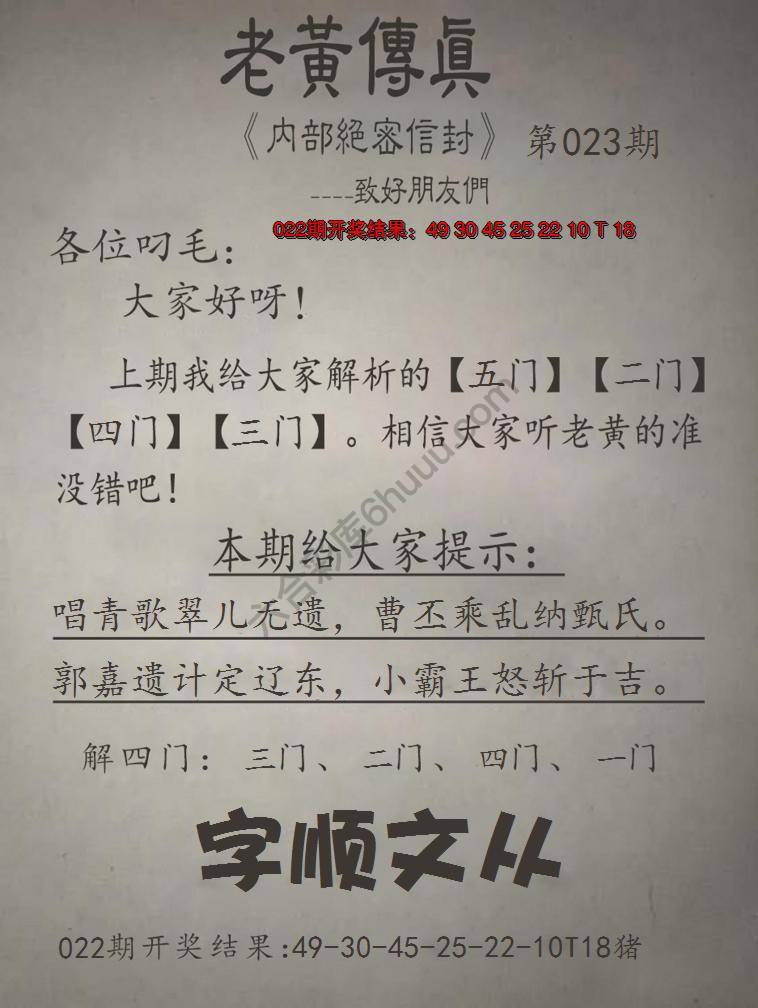 老黃傳眞
《内部絕密信封》 第023期
----致好朋友們
022期开奖结果：49 30 45 25 22 10 T 18
各位叼毛：
大家好呀！
上期我给大家解析的【五门】【二门】
【四门】【三门】。相信大家听老黄的准
没错吧！
本期给大家提示：
唱青歌翠儿无遗，曹丕乘乱纳甄氏。
郭嘉遗计定辽东，小霸王怒斩于吉。
解四门：三门、二门、四门、一门
字顺文从
022期开奖结果:49-30-45-25-22-10T18猪
六合彩库6huuu.com